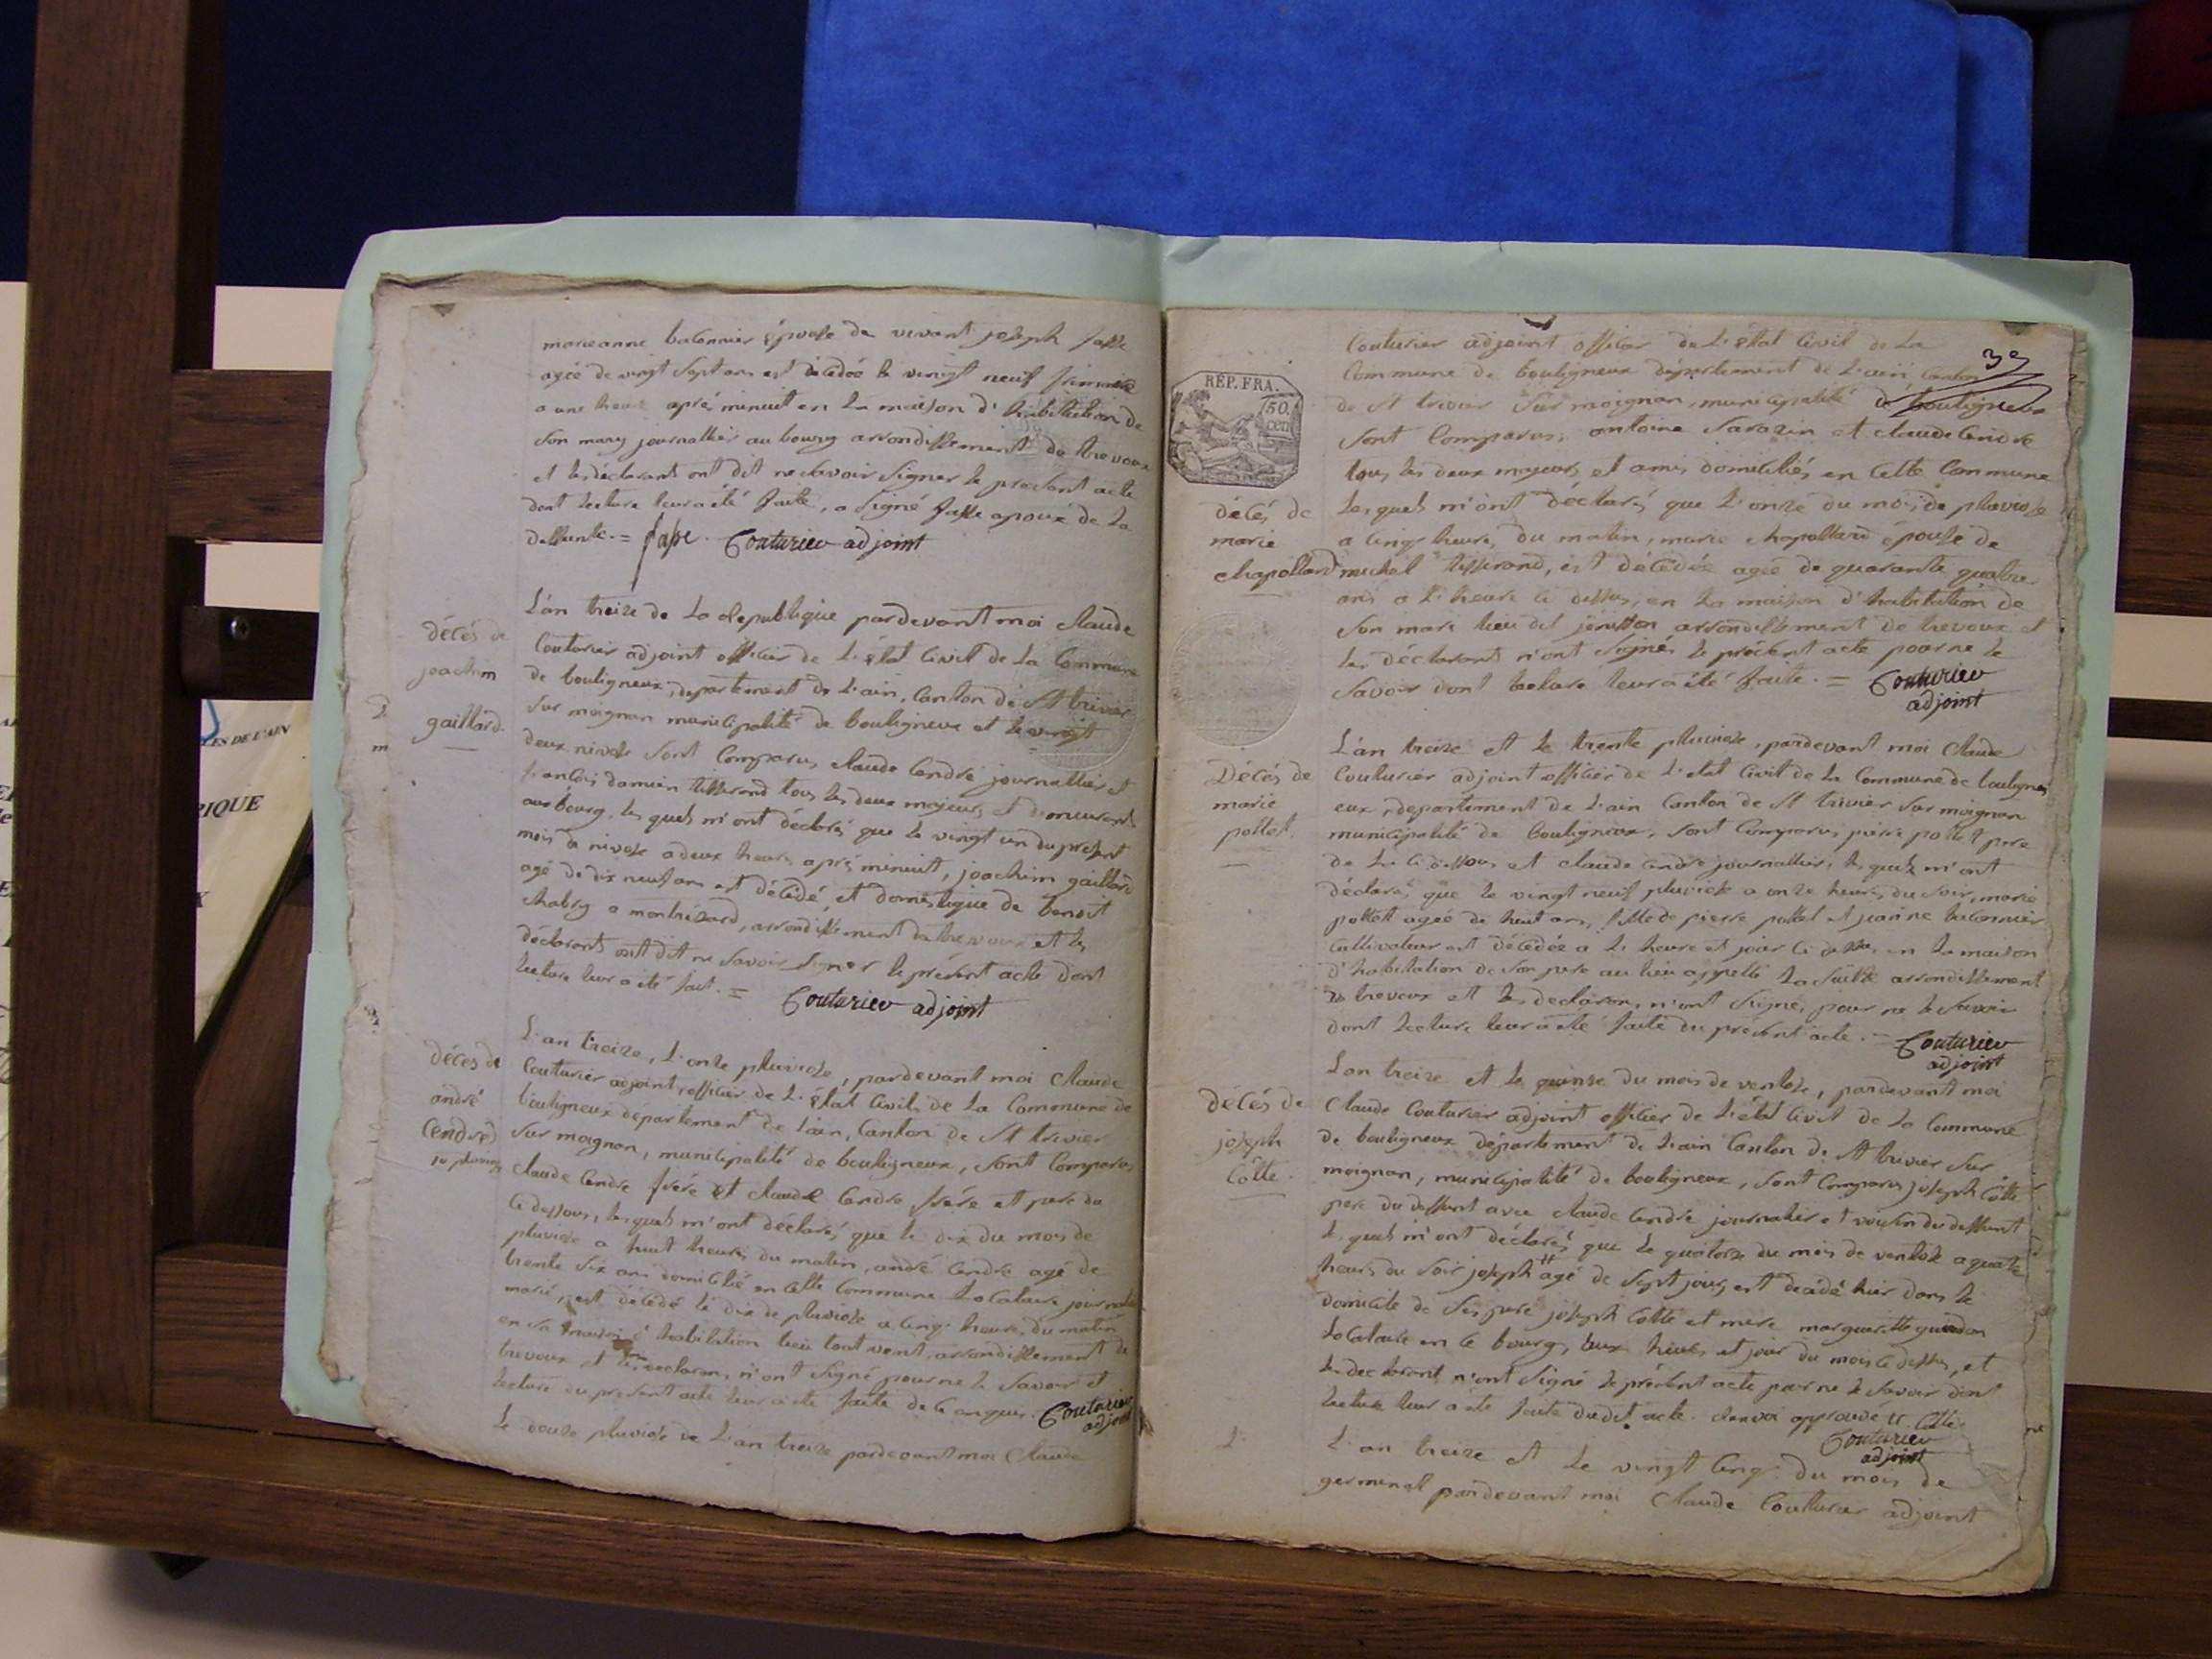 marieanne baconnier épouse de vivant joseph fasse
agée de vingt sept ans est décédée le vingt neuf frimaire
a une heure après minuit en la maison d'habitation de
son mary journallier au bourg arrondissement de trevoux
et les déclarants ont dit ne savoir signer le présent acte
dont lecture leur a été faite, a signé fasse apoux de la
deffunte. = fasse. Couturier adjoint
décés de
joachim
gaillard.
L'an treize de la republique pardevant moi Claude
Couturier adjoint officier de L'état Civil de La Commune
de bouligneux, departement de L'ain, Canton de St trivier
sur moignan municipalité de bouligneux et le vingt
deux nivose sont Comparus Claude Cendré journallier et
françois damien tisserand tous les deux majeurs et demeurants
au bourg, les quels m'ont déclarés que le vingt un du présent
mois de nivose a deux heures après minuit, joachim gaillard
agé de dix neuf ans est décédé et domestique de benoit
chabry a montrézard, arrondissement de trevoux et les
déclarants ont dit ne savoir signer le présent acte dont
lecture leur a été fait. = Couturier adjoint
décés de
andré
Cendré
L'an treize, L'onze pluviose, pardevant moi Claude
Couturier adjoint, officier de L'état Civil de La Commune de
bouligneux département de Lain, Canton de St trivier
sur moignan, municipalité de bouligneux, sont Comparus
Claude Cendre frère et claude Cendre frére et pere du
Ci dessous, les quels m'ont déclarés que le dix du mois de
pluviose a huit heures du matin, andré Cendre agé de
trente six ans domicilié en Cette Commune Locataire journalier
marié, est décédé le dix de pluviose a Cinq heures du matin
en sa maison d'habitation lieu tout vent, arrondissement de
trevoux et les declarans n'ont signé pour ne le savoir et
lecture du present acte leur a été faite Couturier
adjoint
Le douze pluviose de L'an treize pardevant moi Claude
RÉP. FRA.
50.
cen
39
Couturier adjoint officier de L'état Civil de La
Commune de bouligneux département de L'ain, Canton
de St trivier sur moignan, municipalité de bouligneux
sont Comparus, antoine Sarazin et claude Cendre
tous les deux majeurs et amis domiciliés en Cette Commune
Les quels m'ont déclarés que L'onze du mois de pluviose
a Cinq heures du matin, marie chapollard épouse de
décés de
marie
chapollard
michel tisserand, est décédée agée de quarante quatre
ans a L'heure Ci dessus, en La maison d'habitation de
son mari lieu dit arrondissement de trevoux et
les déclarants n'ont signés le présent acte pour ne le
savoir dont lecture leur a été faite. = Couturier
adjoint
Décés de
marie
pollet.
L'an treize et le trente pluviose, pardevant moi Claude
Couturier adjoint officier de L'etat Civil de La Commune de boulign
eux, departement de L'ain Canton de St trivier sur moignan
municipalité de bouligneux, sont Comparus pierre pollet pere
de La Ci dessous et claude Cendre journallier, les quels m'ont
déclarés que le vingt neuf pluviose a onze heures du soir, marie
pollet agée de huit ans, fille de pierre pollet et jeanne baconnier
Cultivateur est décédée a L'heure et jour Ci dessus en La maison
d'habitation de son pere au lieu appellé La arrondissement
de trevoux et les declarans n'ont signé, pour ne le savoir
dont lecture leur a été faite du présent acte. = Couturier
adjoint
décés de
joseph
Cotte.
L'an treize et le quinze du mois de ventose, pardevant moi
Claude Couturier adjoint officier de L'état Civil de La Commune
de bouligneux département de L'ain Canton de St trivier sur
moignan, municipalité de bouligneux, sont Comparus joseph Cotte
pere du deffunt avec claude Cendre journalier et voisin du deffunt
les quels m'ont déclarés que le quatorze du mois de ventose a quatre
heures du soir joseph agé de sept jours est décédé hier dans le
domicile de ses pere joseph Cotte et mere margueritte
Locataire en Ce bourg, aux heures et jour du mois Ci dessus, et
les declarant n'ont signé le présent acte pour ne le savoir dont
lecture leur a été faite dudit acte. approuvé Cotte
Couturier
adjoint
L'an treize et Le vingt Cinq du mois de
germinal pardevant moi Claude Couturier adjoint
LES DE L'AIN
RIQUE